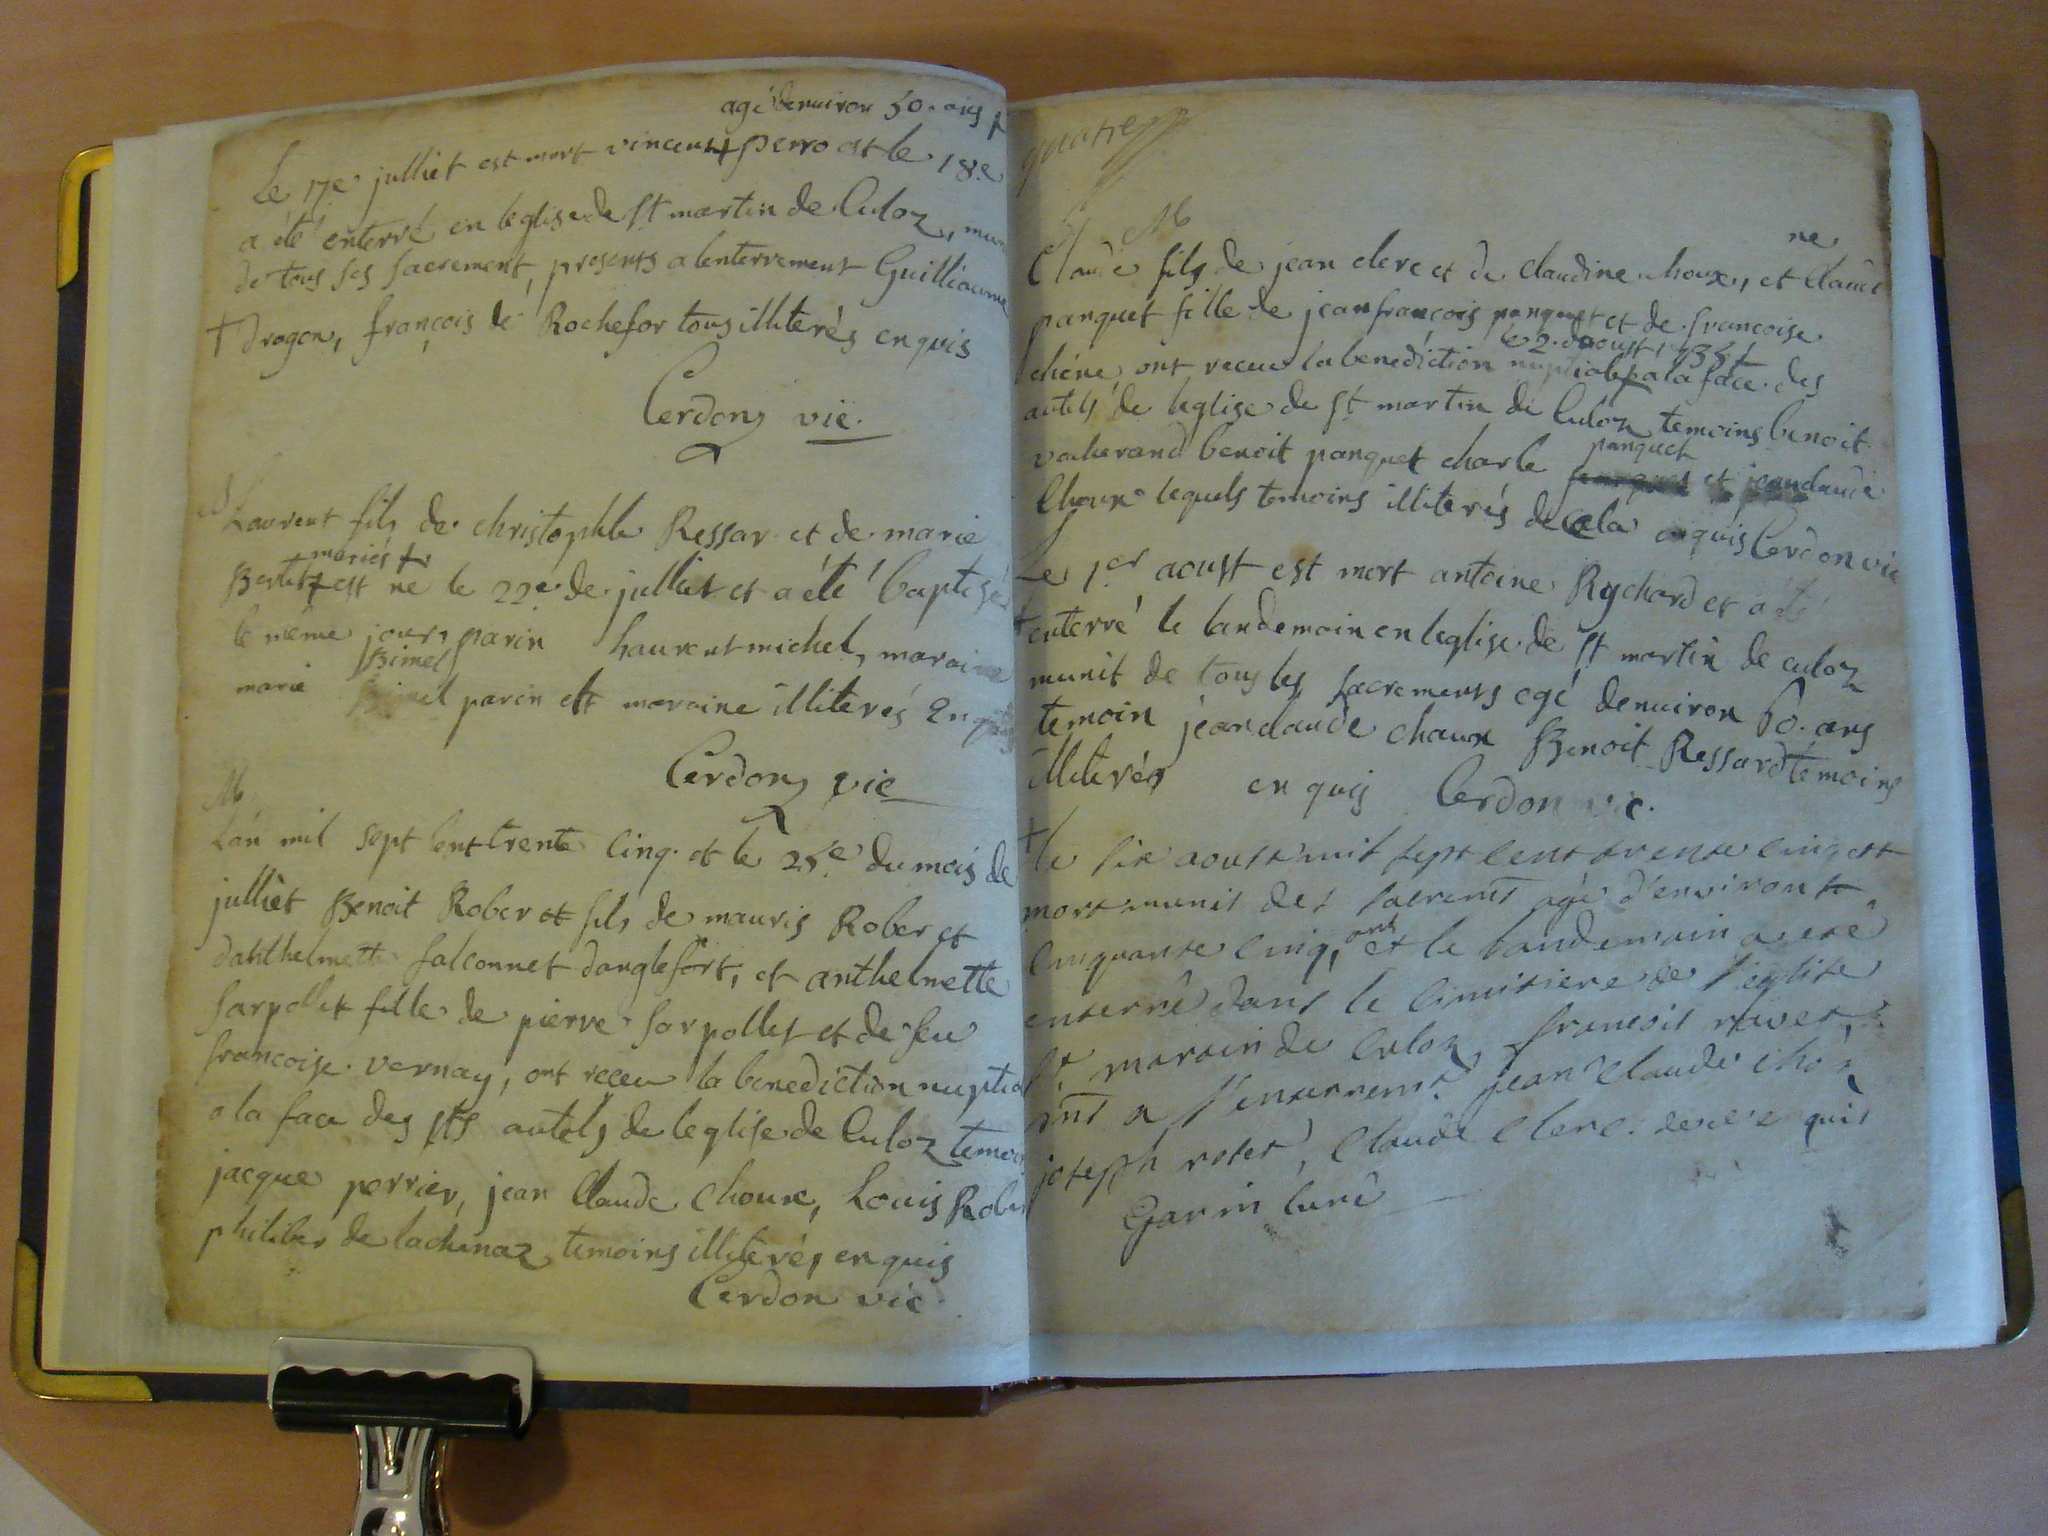 agé denuiron 50. ans +
Le 17e julliet est mort vincent + perro et le 18e
a été enterré en leglise de St martin de Culoz, muni
de tous ses sacrement, presents a lenterrement Guilliaume
+ Drogon, françois de Rochefor tous illiterés enquis
Cerdon vic.
Laurent fils de christophle Ressar et de marie
mariés +
Bertet + est né le 22e de julliet et a été baptisé
le même jour, parin Laurent michel, maraine
Bimet
marie parin et maraine illiterés Enquis
Cerdon vic
M
Lan mil sept cent trente Cinq. et le 25e du mois de
julliet Benoit Rober et fils de mauris Rober et
danthelmette falconnet danglefort, et anthelmette
Sarpollet fille de pierre Sarpollet et de feu
francoise vernay, ont receu la benediction nuptial
a la face des sts autels de leglise de Culoz temoins
jacque perrier, jean Claude Choux, Louis Rober
philiber de lachenaz temoins illiterés enquis
Cerdon vic.
quatre
M
ne
Claude fils de jean clerc et de Claudine choux, et Claude
panquet fille de jean françois panquet et de francoise
le 2. daoust 1735 +
chéne, ont receu la benediction nuptiale + a la face des
autels de leglise de St martin de Culoz temoins benoit
vacherand benoit panquet charle panquet et jean claude
Choux lequels temoins illiterés de cela enquis Cerdon vic
Le 1er aoust est mort antoine Rychard et a été
+ enterré le landemain en leglise de St martin de culoz
munit de tous les sacrements agé denuiron 60. ans
temoin jean claude chaux Benoit Ressard temoins
illiterés enquis Cerdon vic.
+ le six aoust mil sept cent trente cinq est
mort munit des sacremts agé d'environt
ans
cinquante cinq, et le landemain a eté
enterré dans le cimitiere de l'eglise
St martin de Culoz francois ravet,
pnts a l'enterremt. jean Claude chou
joseph rotet, Claude Clerc. de ce enquis
Garin Curé